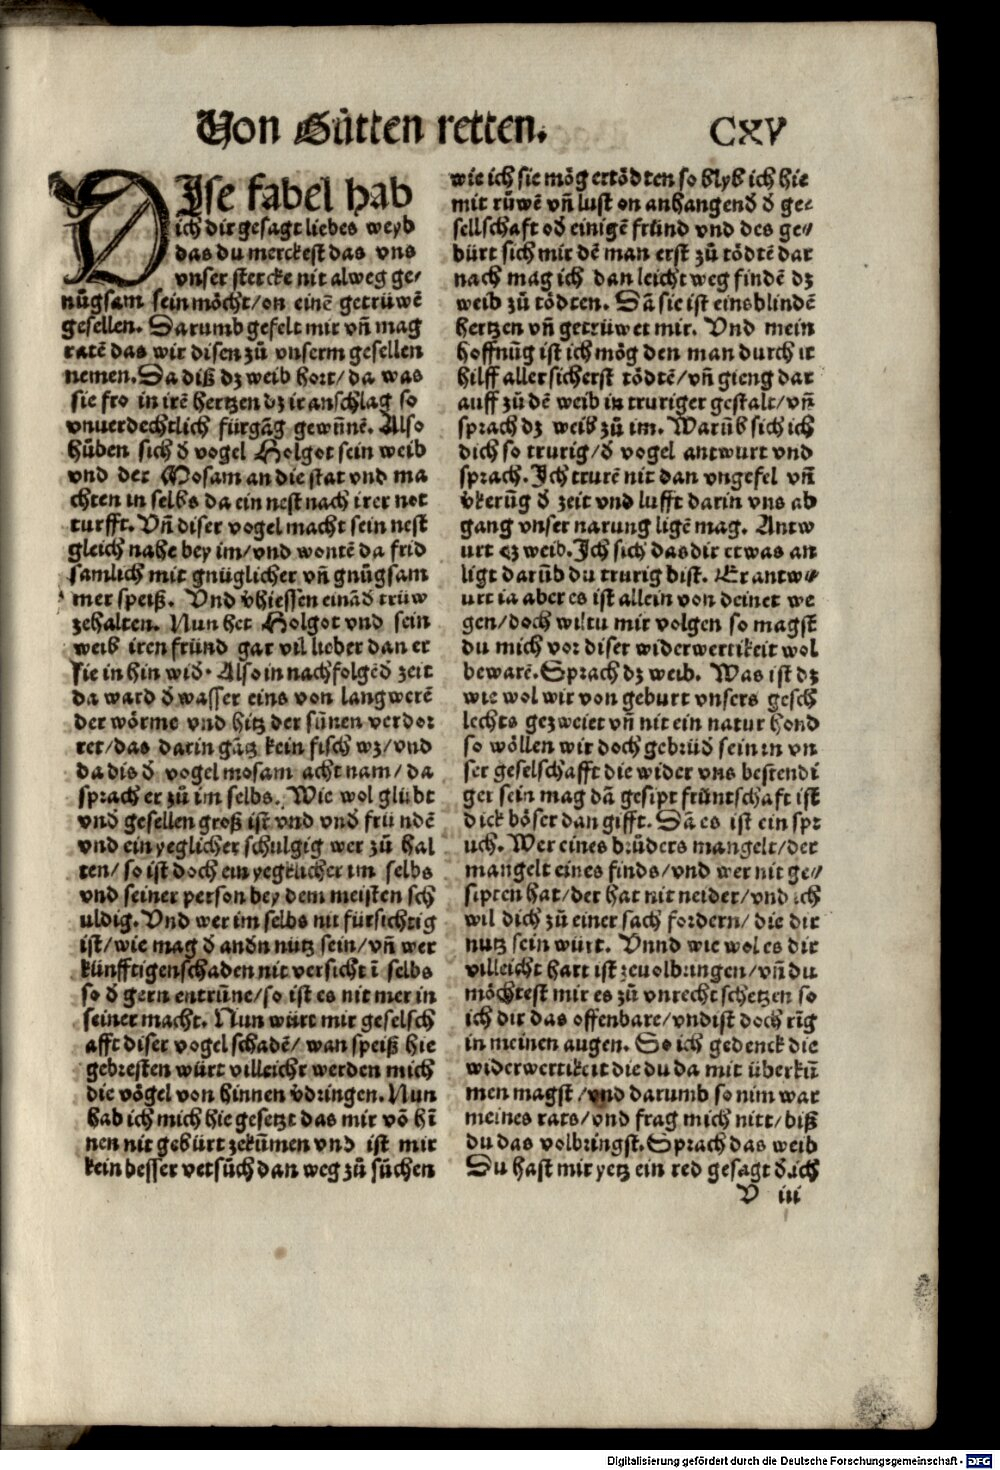 Von Gůtten retten.
CXV
DIse fabel hab
ich dir gesagt liebes weyb
das du merckest das vns
vnser stercke nit alweg ge⸗
nůgsam sein möcht/on einē getrüwē
gesellen. Darumb gefelt mir vñ mag
ratē das wir disen zů vnserm gesellen
nemen. Da diß dz weib hort/da was
sie fro in irē hertzen dz ir anschlag so
vnuerdechtlich fürgāg gewūnē. Also
hůben sich d̄ vogel Holgot sein weib
vnd der Mosam an die stat vnd ma
chten in selbs da ein nest nach irer not
turfft. Vñ diser vogel macht sein nest
gleich nahe bey im/vnd wontē da frid
samlich mit gnüglicher vñ gnůgsam
mer speiß. Vnd v̄hiessen einād̄ trüw
zehalten. Nun het Holgot vnd sein
weib iren fründ gar vil lieber dan er
sie in hin wid. Also in nachfolgēd̄ zeit
da ward d̄ wasser eins von langwerē
der wörme vnd hitz der sünen verdor
ret/das darin gātz kein fisch wz/vnd
da dis d̄ vogel mosam acht nam/da
sprach er zů im selbs. Wie wol glübt
vnd gesellen groß ist vnd vnd fründē
vnd ein yeglicher schulgig wer zů hal
ten/so ist doch ein yegklicher im selbs
vnd seiner person bey dem meisten sch
uldig. Vnd wer im selbs nit fürsichtig
ist/wie mag d̄ andn nütz sein/vñ wer
künfftigen schaden nit versicht ī selbs
so d̄ gern entrüne/so ist es nit mer in
seiner macht. Nun würt mir geselsch
afft diser vogel schadē/wan speiß hie
gebresten würt villeicht werden mich
die vögel von hinnen v̄dringen. Nun
hab ich mich hie gesetzt das mir vō hī
nen nit gebürt zekūmen vnd ist mir
kein besser versůch dan weg zů sůchen
wie ich sie mög ertödten so blyb ich hie
mit rüwē vñ lust on anhangend d̄ ge⸗
sellschaft od einigē fründ vnd des ge⸗
bürt sich mir dē man erst zů tödtē dar
nach mag ich dan leicht weg findē dz
weib zů tödten. Dā sie ist eins blindē
hertzen vñ getrüwet mir. Vnd mein
hoffnūg ist ich mög den man durch ir
hilff aller sicherst tödtē/vñ gieng dar
auff zů dē weib in truriger gestalt/vñ
sprach dz weib zů im. Warūb sich ich
dich so trurig/d̄ vogel antwurt vnd
sprach. Ich trurē nit dan vngefel vñ
v̄kerūg d̄ zeit vnd lufft darin vns ab
gang vnser narung ligē mag. Antw
urt dz weib. Ich sich das dir etwas an
ligt darūb du trurig bist. Er antw⸗
urt ia aber es ist allein von deinet we
gen/doch wiltu mir volgen so magst
du mich vor diser widerwertikeit wol
bewarē. Sprach dz weib. Was ist dz
wie wol wir von geburt vnsers gesch
lechts gezweiet vñ nit ein natur hond
so wöllen wir doch gebrüd̄ sein in vn
ser geselschafft die wider vns bestendi
ger sein mag dā gesipt früntschaft ist
dick böser dan gifft. Dā es ist ein spr
uch. Wer eines brůders mangelt/der
mangelt eines finds/vnd wer nit ge⸗
sipten hat/der hat nit neider/vnd ich
wil dich zů einer sach fordern/die dir
nutz sein würt. Vnnd wie wol es dir
villeicht hart ist zeuolbringen/vñ du
möchtest mir es zů vnrecht schetzen so
ich dir das offenbare/vnd ist doch rīg
in meinen augen. So ich gedenck die
widerwertikeit die du da mit überkū
men magst/vnd darumb so nim war
meines rats/vnd frag mich nitt/biß
du das volbringst. Sprach das weib
Du hast mir yetz ein red gesagt d̄ ich
V iii
Digitalisierung gefördert durch die Deutsche Forschungsgemeinschaft - DFG